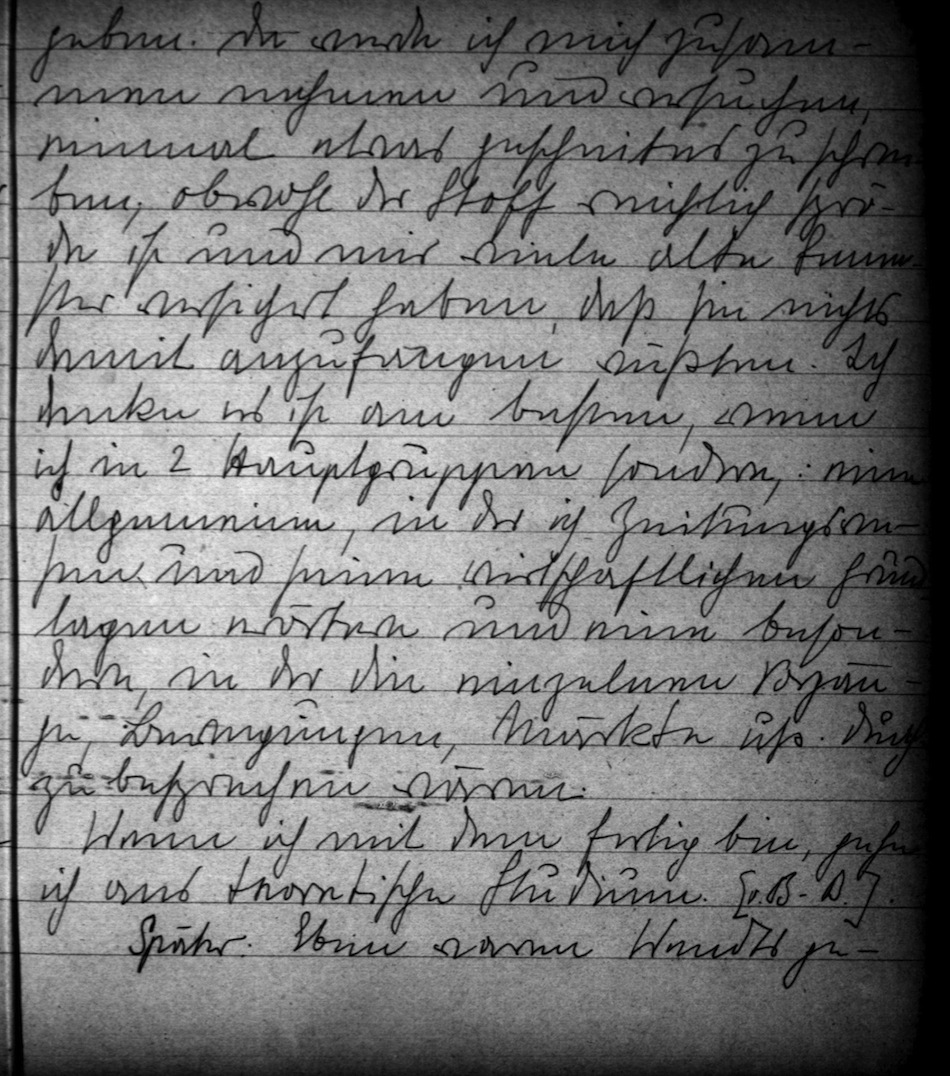 geben. Da werde ich mich zusam-
men nehmen und versuchen,
einmal etwas gescheites zu schrei-
ben, obwohl der Stoff reichlich sprö-
de ist und mir viele alte
ster versichert haben, daß sie nichts
damit anzufangen wüßten. Ich
denke es ist am besten, wenn
ich in 2 Hauptgruppen sondere,: eine
allgemeine, in der ich Zeitungswe-
sen und seine wirtschaftlichen Grund
lagen erörtere und eine beson-
dere, in der die einzelnen Vorgän-
ge, Bewegungen, Märkte usw. durch
zu besprechen wären.
Wenn ich mit dem fertig bin, gehe
ich ans theoretische Studium. [v.B-D.].
Später. Eben waren Wendts ge-